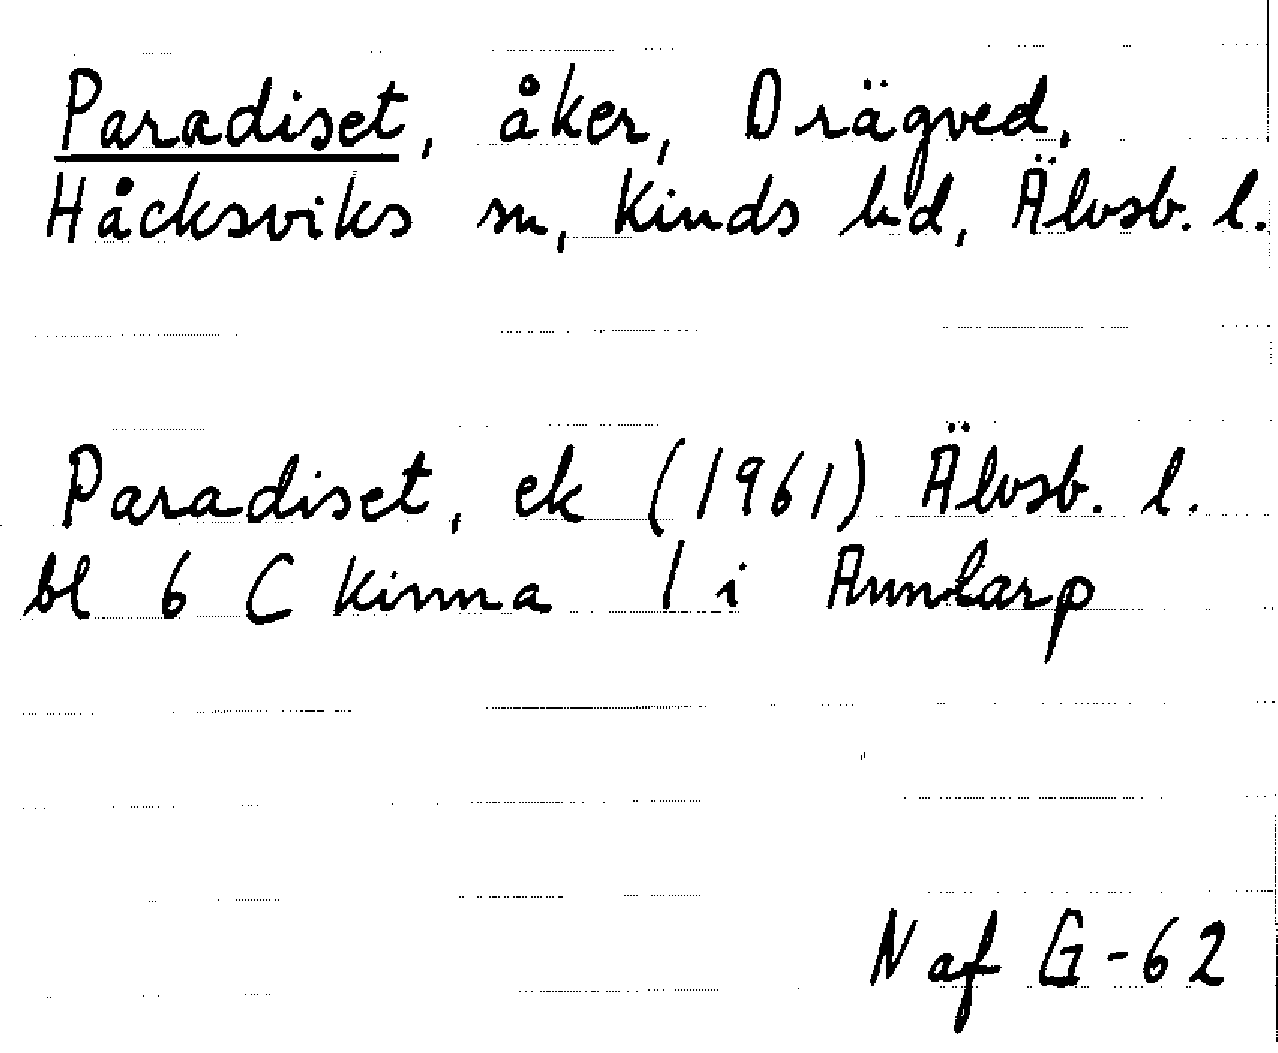 Paradiset, åker, Drägved,
Håcksviks sn, Kinds hd, Älvsb. l.
Paradiset, ek (1961) Älvsb. l.
bl 6 C Kinna 1 i Annlarp
N af G-62